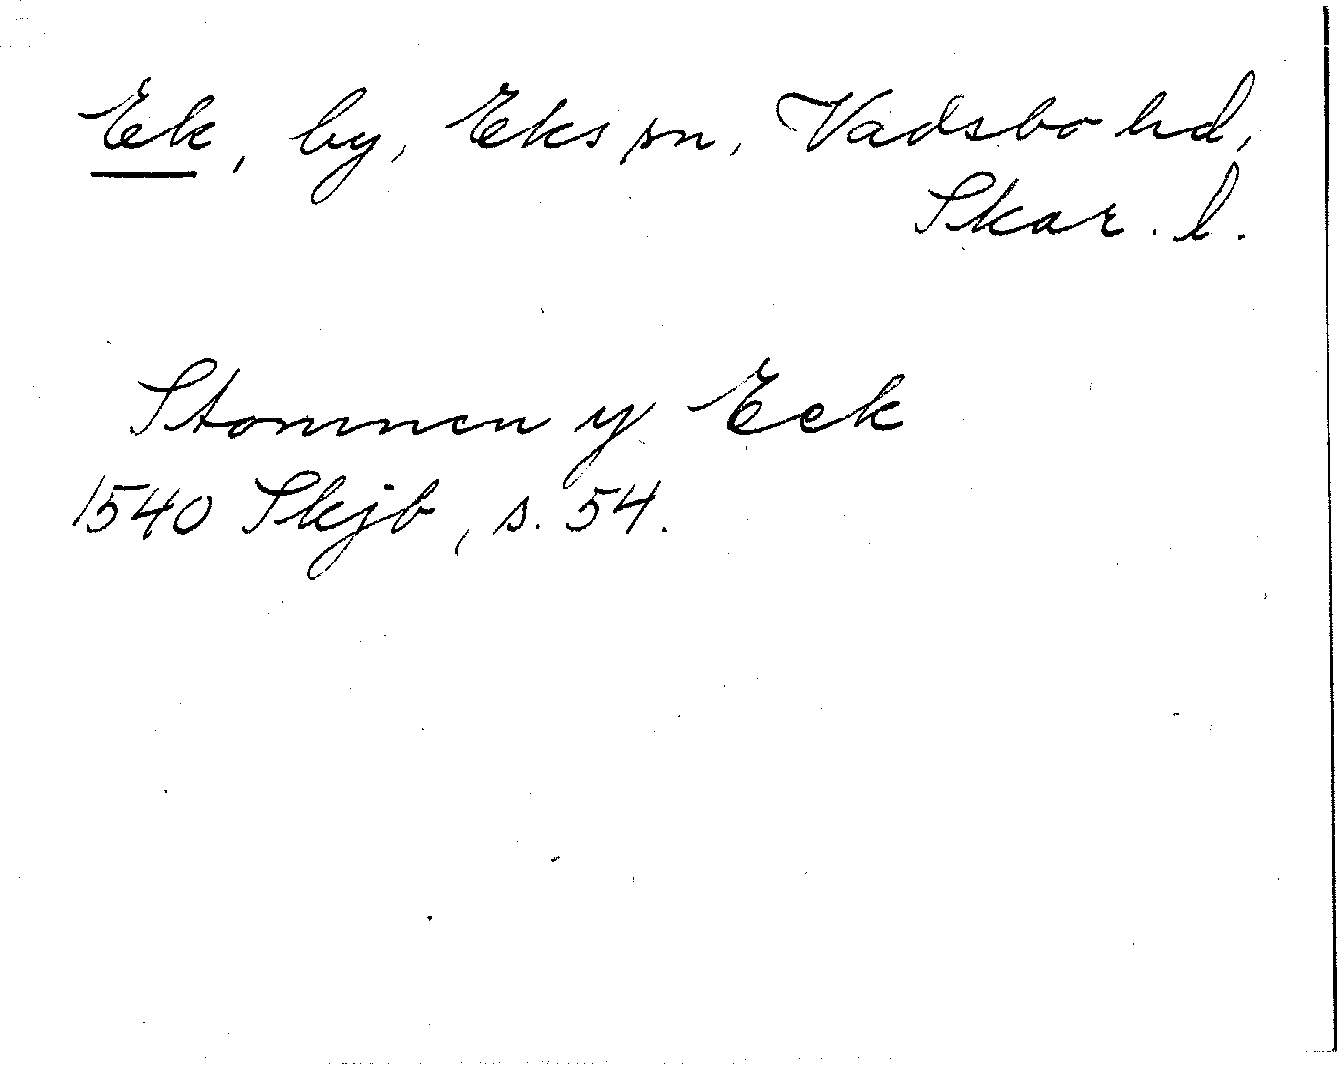 Ek, by, Eks sn, Vadsbo hd,
Skar. l.
Stommen y Eek
1540 Skjb, s. 54.